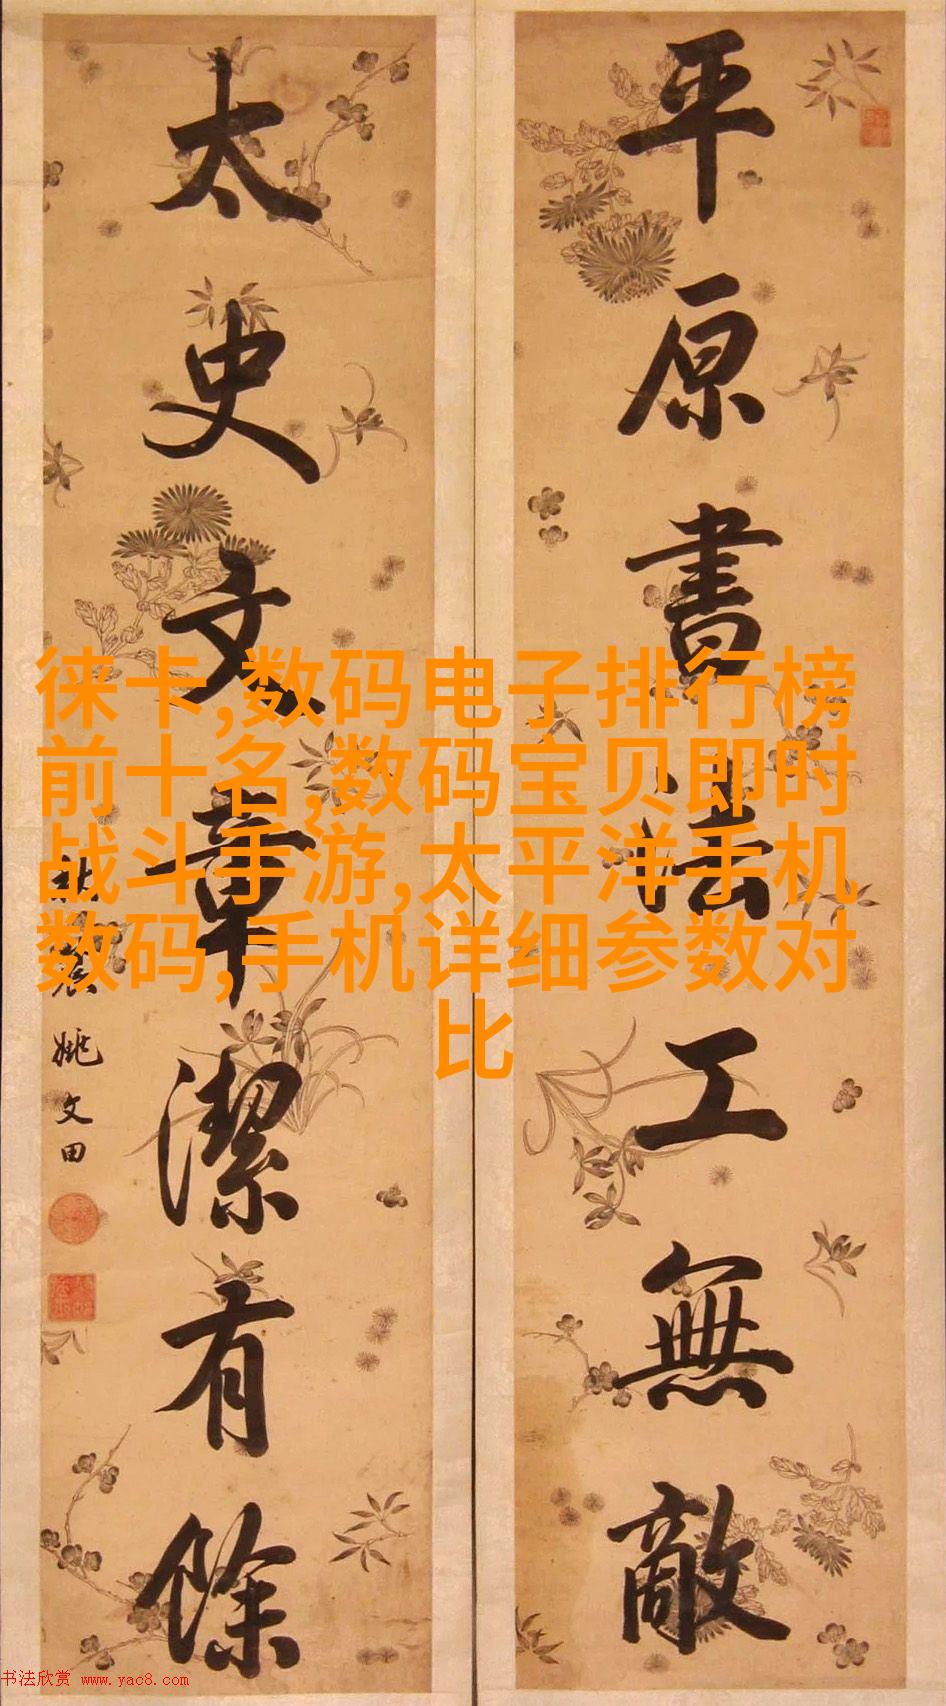 平原書法工無敵
太史文章潔有餘
姚文田
徕卡,数码电子排行榜
前十名,数码宝贝即时
战斗手游,太平洋手机
数码,手机详细参数对
比
书法欣赏 www.yac8.com